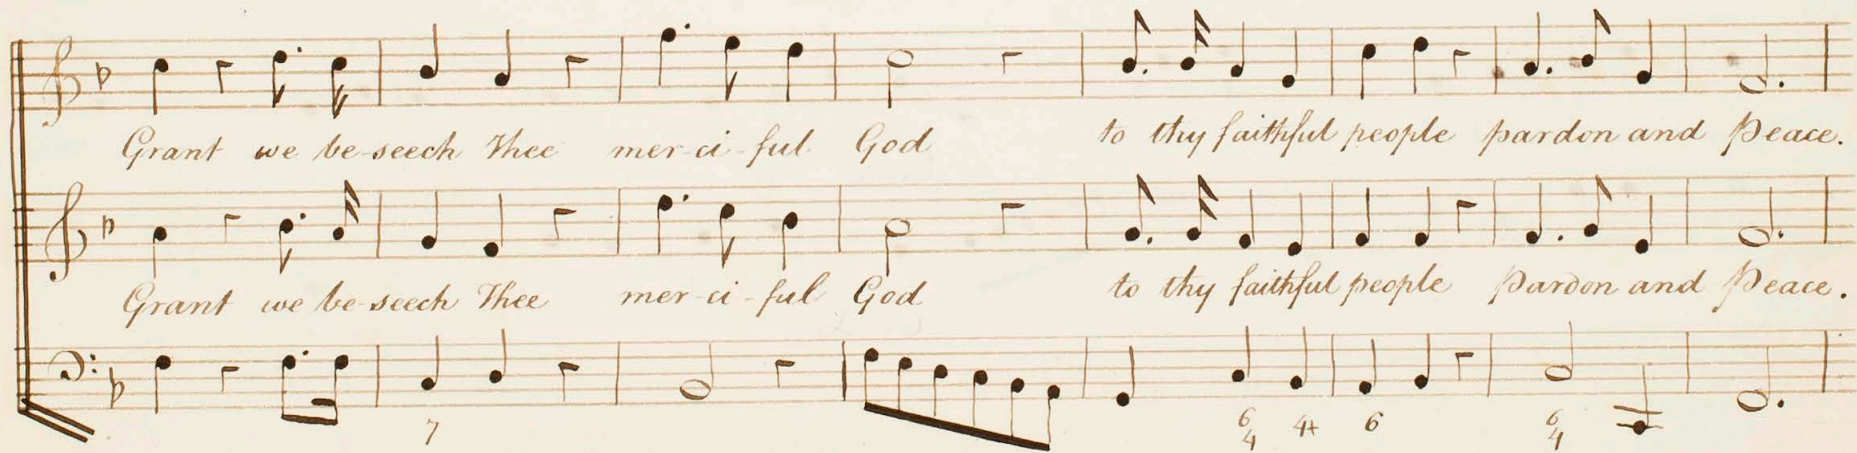 Grant we be-seech Thee mer-ci-ful God to thy faithful people pardon and Peace.
Grant we be-seech Thee mer-ci-ful God to thy faithful people Pardon and Peace.
7 6 4 4+ 6 6 4